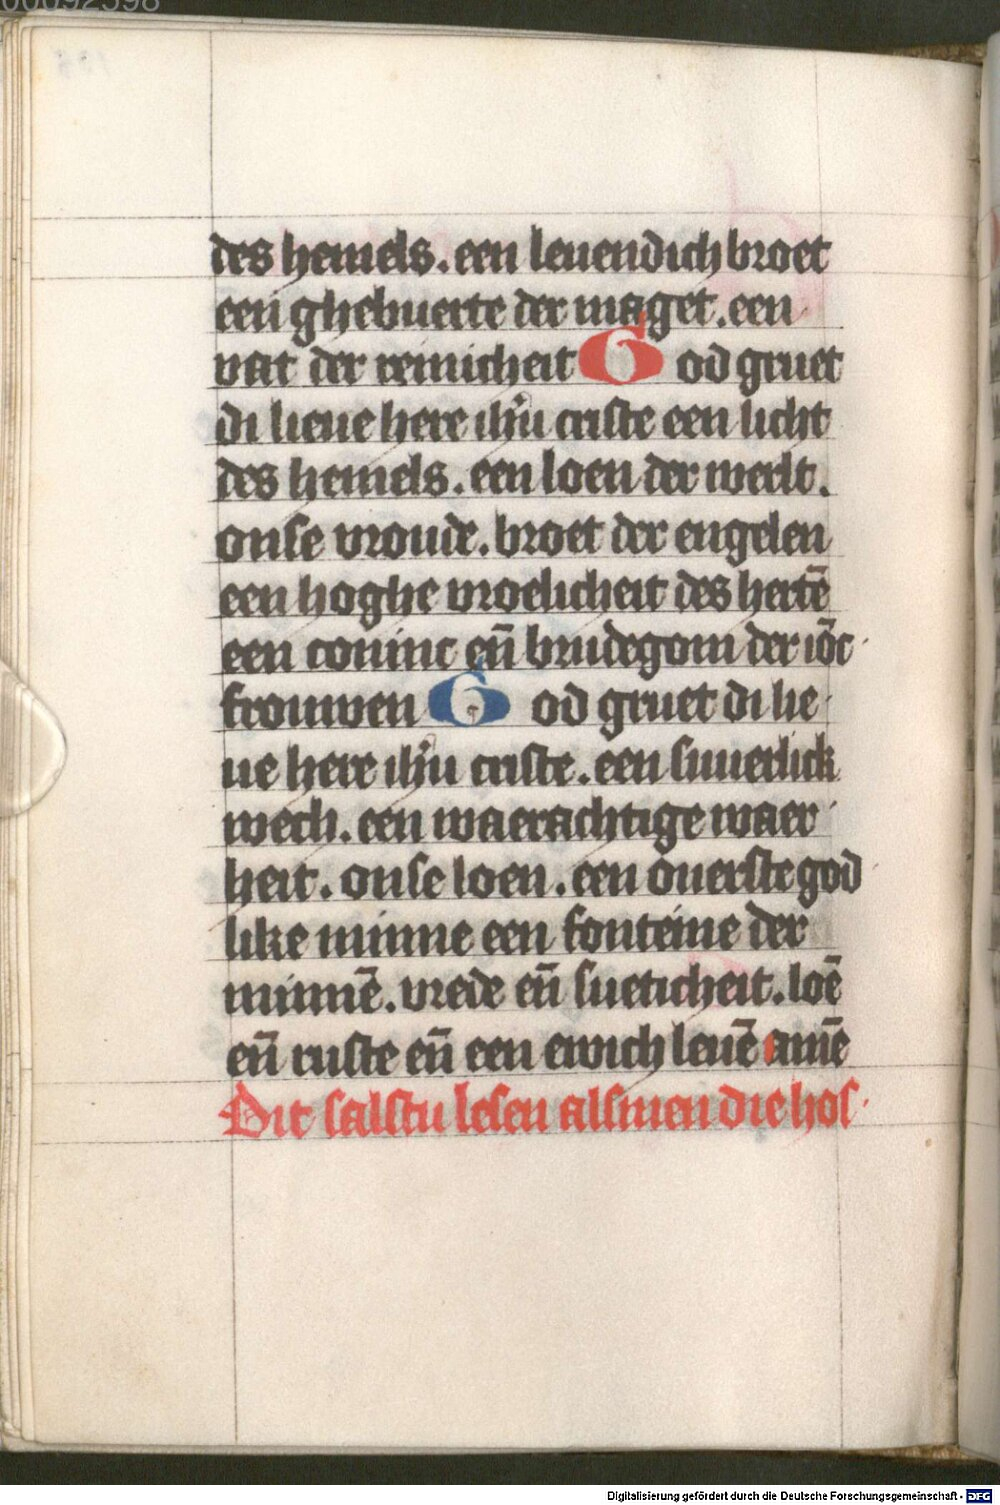 00092598
des hemels. een leuendich broet
een ghebuerte der maget. een
vat der reinicheit God gruet
di lieue here ihū criste een licht
des hemels. een loen der werlt.
onse vroude. broet der engelen
een hoghe vroelicheit des hertē
een coninc eñ brudegom der iōc
frouwen God gruet di lie
ue here ihū criste. een suuerlick
wech. een waerachtige waer
heit. onse loen. een ouerste god
like minne een fonteine der
minnē. vrede eñ sueticheit. loē
eñ ruste eñ een ewich leuē amē
Dit salstu lesen alsmen die hos
Digitalisierung gefördert durch die Deutsche Forschungsgemeinschaft - DFG